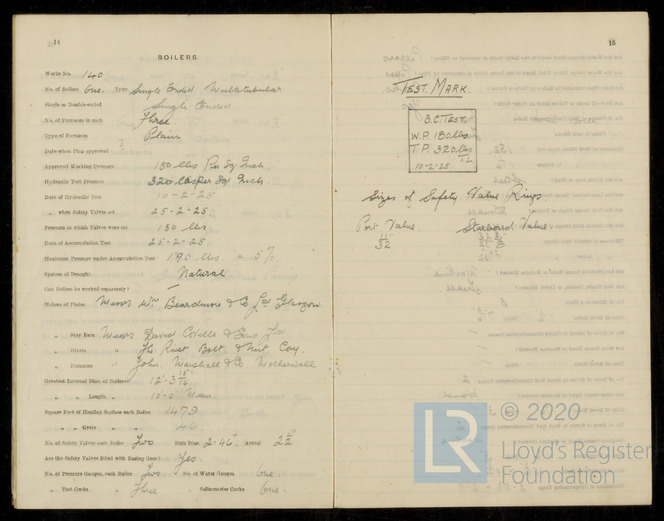 14
BOILERS.
Works No. 140
No. of Boilers One. Type Single Ended Multitubular
Single or Double-ended Single Ended
No. of Furnaces in each Three
Type of Furnaces Plain
Date when Plan approved ?
Approved Working Pressure 180 lbs Per Sq Inch
Hydraulic Test Pressure 320 lbs Per Sq Inch
Date of Hydraulic Test 10-2-25
„ when Safety Valves set 25-2-25
Pressure at which Valves were set 180 lbs.
Date of Accumulation Test 25-2-25.
Maximum Pressure under Accumulation Test 190 lbs. = 5%
System of Draught Natural
Can Boilers be worked separately?
Makers of Plates Messrs Wm Beardmore & Co Ltd Glasgow
„ Stay Bars Messrs David Colville & Sons Ltd
„ Rivets „ The Rivet Bolt & Nut Coy.
„ Furnaces „ John Marshall & Co Motherwell
Greatest Internal Diam. of Boilers 12'-3 15/16"
„ „ Length „ 10-0 Mean.
Square Feet of Heating Surface each Boiler 1479
„ „ Grate „ „ 46
No. of Safety Valves each Boiler Two Rule Diam. 2.46" Actual 2½"
Are the Safety Valves fitted with Easing Gear? Yes.
No. of Pressure Gauges, each Boiler Two No. of Water Gauges One.
„ Test Cocks „ Three „ Salinometer Cocks One.
15
TEST MARK.
B.C. TEST.
W.P. 180 lbs
T.P. 320 lbs
10-2-25
Sizes of Safety Valve Rings.
Port Valve Starboard Valve
© 2020
LR
Lloyd's Register
Foundation